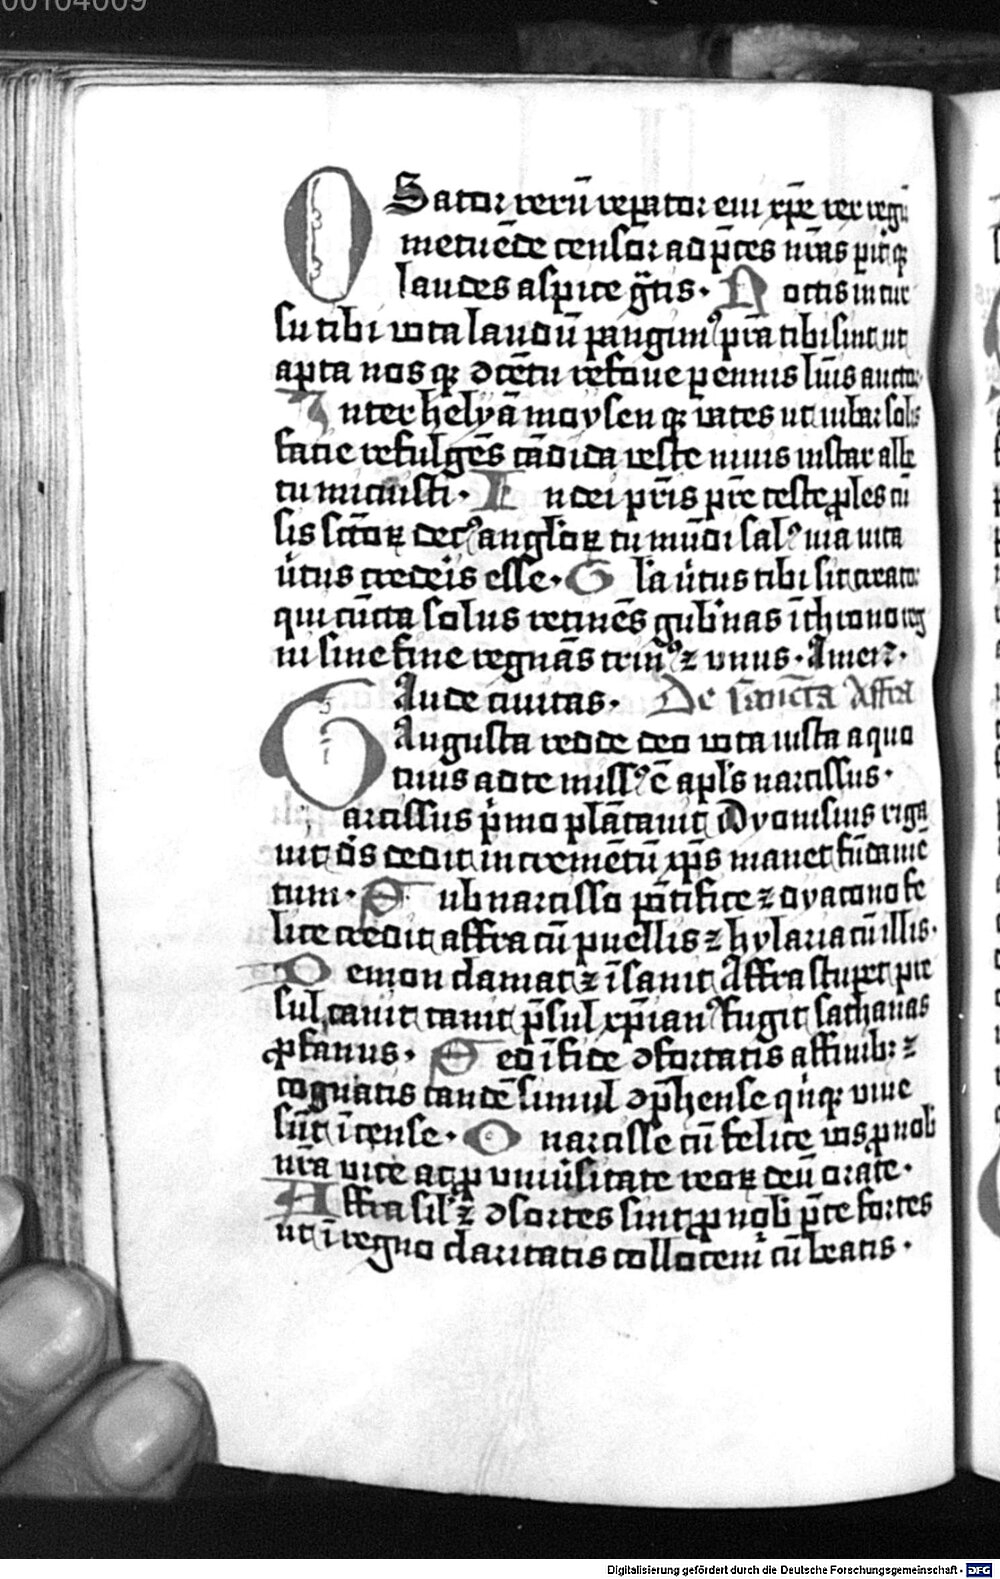 00104009
O Sator rerū reꝑator eui xp̄e rex regū
metuēde censor ad p̄ces nr̄as pit̄qꝫ
laudes aspice gr̄tis. Noctis in cur
su tibi vota laudū pangim⁹ pr̄a tibi sint ut
apta nos qꝫ ꝯcētu refoue pennis lūis auctor
Inter helyā moysen qꝫ vates ut iubar solis
facie refulgēs cādida veste niuis instar alle
tu micuisti. E n dei pr̄is pr̄e teste ꝓles cū
sis sctōꝝ dec⁹ angl'oꝝ tu mūdi sal⁹ uia uita
v̄tus credēis esse. G l'a v̄tus tibi sit creator
qui cūcta solus retinēs gub'nas ī throno reg
ni sine fine regnās trin⁹ ⁊ vnus. Amen.
Aude ciuitas. De sancta Affra
G Augusta redde deo vota iusta a quo
diuis ad te miss⁹ ē apl's narcissus.
N arcissus p'mo plātauit Dyonisius riga
uit dō's dedit incremētū xp̄s manet fūdamē
tum. Sub narcisso pōtifice ⁊ dyacono fe
lice credit affra cū puellis ⁊ hylaria cū illis.
Demon clamat ⁊ īsanit Affra stupet pre
sul canit canit p̄sul xp̄ian⁹ fugit sathanas
ꝓfanus. Sed ī fide ꝯfortatis affinibꝫ ⁊
cognatis tandē simul ꝯp̄hense q'nqꝫ viue
sūt īcense. O narcisse cū felice vos ꝓ nob'
nr̄a vice acꝑ vniu'sitate reoꝝ deū orate.
Affra sil' ⁊ ꝯsortes sint ꝓ nob' p̄ce fortes
ut ī regno claritatis collocem' cū beatis.
Digitalisierung gefördert durch die Deutsche Forschungsgemeinschaft - DFG